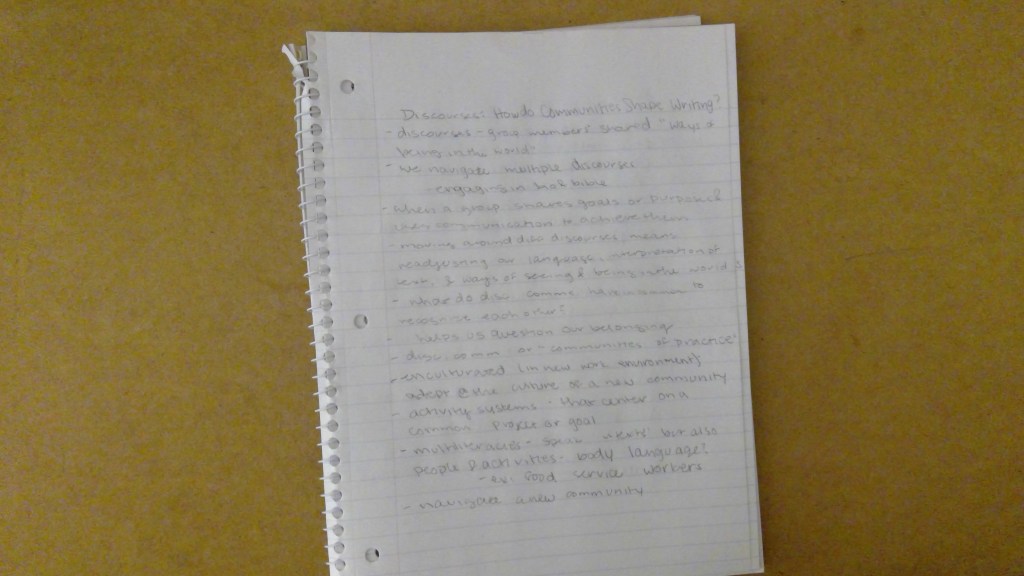 Discourses: How do Communities Shape Writing?
- discourses - group members' shared "ways of
being in the world"
- we navigate multiple discourses
- when a group shares goals or purposes &
uses communication to achieve them
- moving around discourses means
readjusting our language, interpretation of
text, & ways of seeing & being in the world
- what do disc. comm. to
recognize each other?
- helps us question our belonging
- disc. comm. or "communities of practice"
- enculturated (in new work environment)
adopt the culture of a new community
- activity systems - that center on a
common project or goal
- multiliteracies - speak but also
people & activities - body language?
- ex: food service workers
- navigate a new community